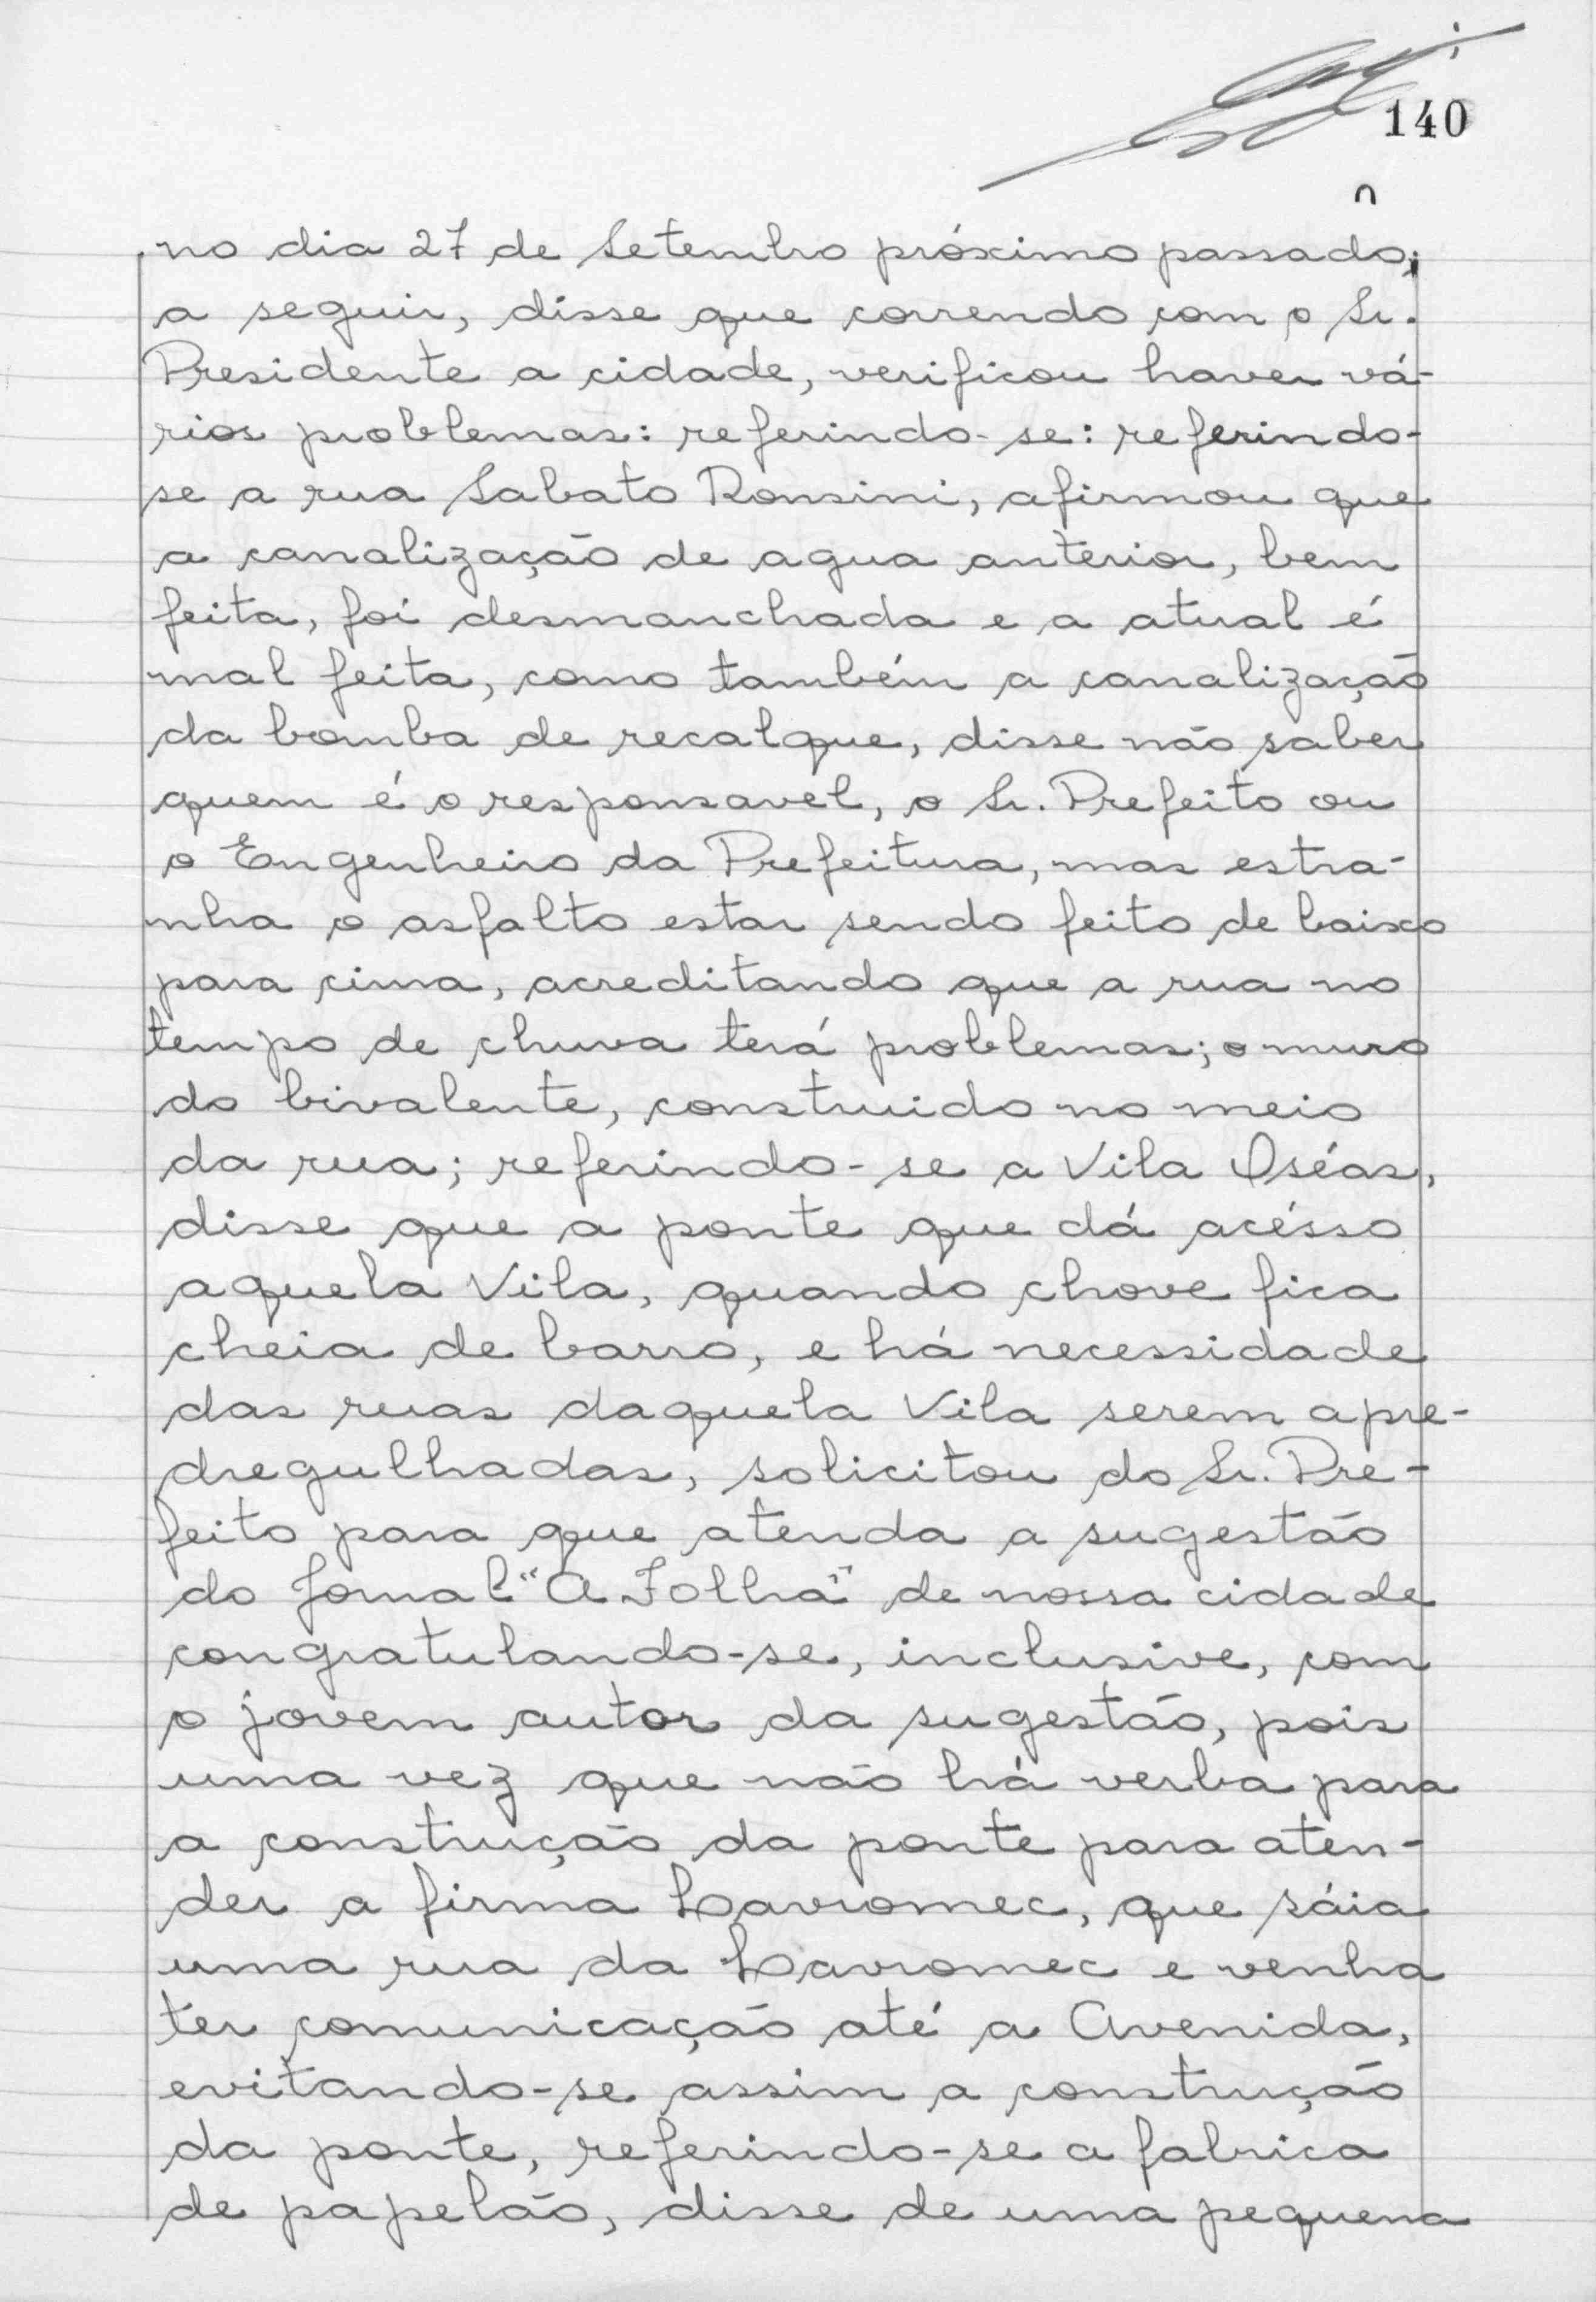 140
no dia 27 de Setembro próximo passado;
a seguir, disse que correndo com o Sr.
Presidente a cidade, verificou haver vá-
rios problemas: referindo-se: referindo-
se a rua Sabato Ronsini, afirmou que
a canalização de agua anterior, bem
feita, foi desmanchada e a atual é
mal feita, como também a canalização
da bomba de recalque, disse não saber
quem é o responsavel, o Sr. Prefeito ou
o Engenheiro da Prefeitura, mas estra-
nha o asfalto estar sendo feito de baixo
para cima, acreditando que a rua no
tempo de chuva terá problemas; o muro
do bivalente, construido no meio
da rua; referindo-se a Vila Oséas,
disse que a ponte que dá acésso
aquela Vila, quando chove fica
cheia de barro, e há necessidade
das ruas daquela Vila serem apre-
dregulhadas, solicitou do Sr. Pre-
feito para que atenda a sugestão
do Jornal "A Folha" de nossa cidade
congratulando-se, inclusive, com
o jovem autor da sugestão, pois
uma vez que não há verba para
a construção da ponte para aten-
der a firma Lavromec, que sáia
uma rua da Lavromec e venha
ter comunicação até a Avenida,
evitando-se assim a construção
da ponte, referindo-se a fabrica
de papelão, disse de uma pequena